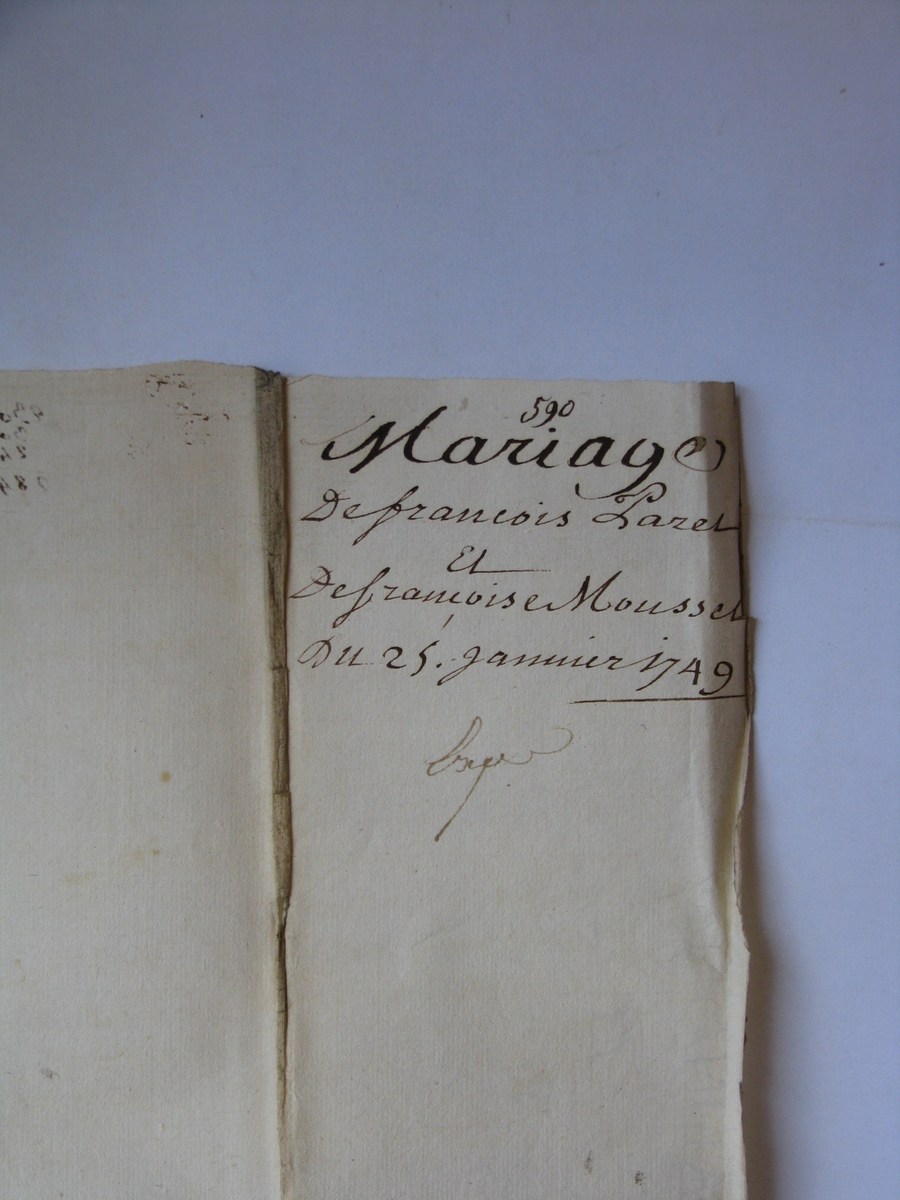 590
Mariage
De francois Laret
Et
De françoise Mousset
Du 25. januier 1749